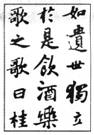 如遺世獨立
於是飲酒樂
歌之歌曰桂